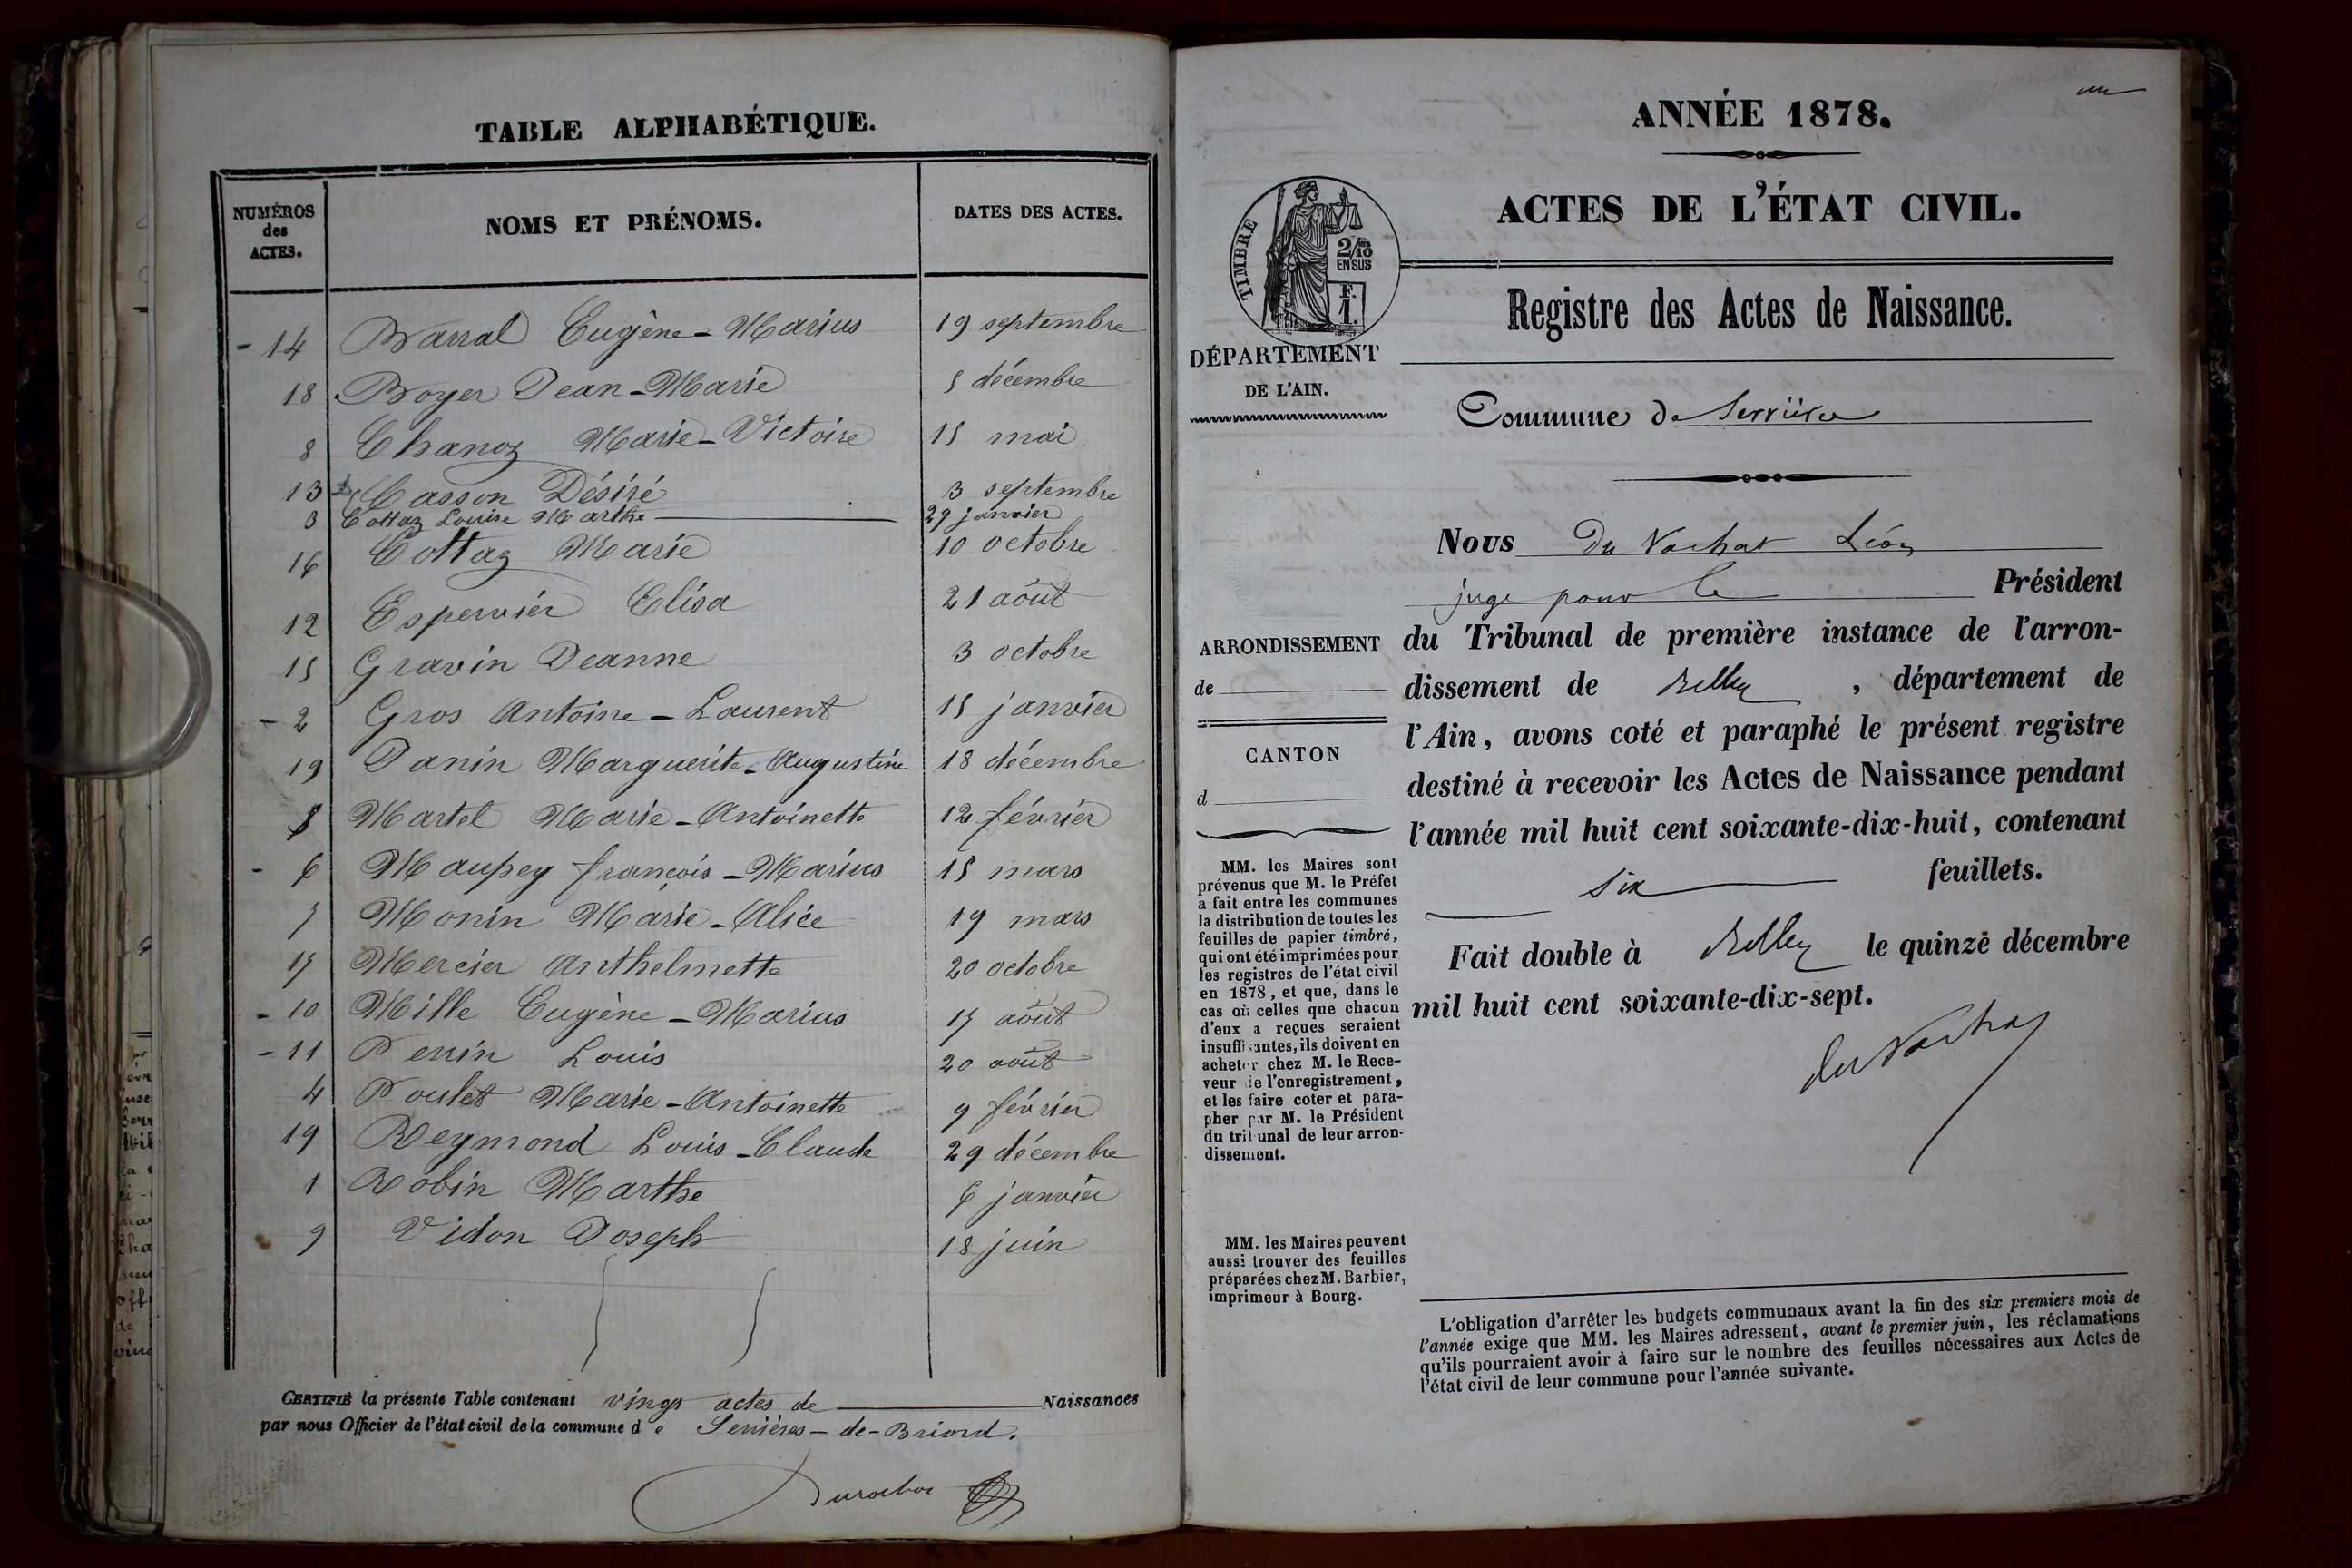 TABLE ALPHABÉTIQUE.
NUMÉROS des ACTES. NOMS ET PRÉNOMS. DATES DES ACTES.
- 14 Barral Eugène - Marius 19 septembre
18 Boyer Jean - Marie 5 décembre
8 Chanoz Marie - Victoire 15 mai
13 Casson Désiré 3 septembre
3 Cottaz Louise Marthe 29 janvier
16 Cottaz Marie 10 octobre
12 Espervier Elisa 21 août
15 Gravin Jeanne 3 octobre
- 2 Gros Antoine - Laurent 15 janvier
19 Janin Marguerite - Augustine 18 décembre
Martel Marie - Antoinette 12 février
- 6 Maupey françois - Marius 15 mars
7 Monin Marie - Alice 19 mars
17 Mercier Anthelmette 20 octobre
- 10 Mille Eugène - Marius 17 août
- 11 Perrin Louis 20 août
4 Poulet Marie - Antoinette 9 février
19 Reymond Louis - Claude 29 décembre
1 Robin Marthe 6 janvier
9 Vidon Joseph 18 juin
CERTIFIÉ la présente Table contenant vingt actes de Naissances
par nous Officier de l'état civil de la commune d e Serrières - de - Briord.
ANNÉE 1878.
ACTES DE L'ÉTAT CIVIL.
TIMBRE
2/10 EN SUS
F. 1.
Registre des Actes de Naissance.
DÉPARTEMENT
DE L'AIN.
Commune de Serrières
Nous Du Vachat Léon
juge pour le Président
du Tribunal de première instance de l'arron-
dissement de Belley, département de
l'Ain, avons coté et paraphé le présent registre
destiné à recevoir les Actes de Naissance pendant
l'année mil huit cent soixante-dix-huit, contenant
six feuillets.
Fait double à Belley le quinze décembre
mil huit cent soixante-dix-sept.
du Vachat
ARRONDISSEMENT
de
CANTON
d
MM. les Maires sont
prévenus que M. le Préfet
a fait entre les communes
la distribution de toutes les
feuilles de papier timbré,
qui ont été imprimées pour
les registres de l'état civil
en 1878, et que, dans le
cas où celles que chacun
d'eux a reçues seraient
insuffisantes, ils doivent en
acheter chez M. le Rece-
veur de l'enregistrement,
et les faire coter et para-
pher par M. le Président
du tribunal de leur arron-
dissement.
MM. les Maires peuvent
aussi trouver des feuilles
préparées chez M. Barbier,
imprimeur à Bourg.
L'obligation d'arrêter les budgets communaux avant la fin des six premiers mois de
l'année exige que MM. les Maires adressent, avant le premier juin, les réclamations
qu'ils pourraient avoir à faire sur le nombre des feuilles nécessaires aux Actes de
l'état civil de leur commune pour l'année suivante.